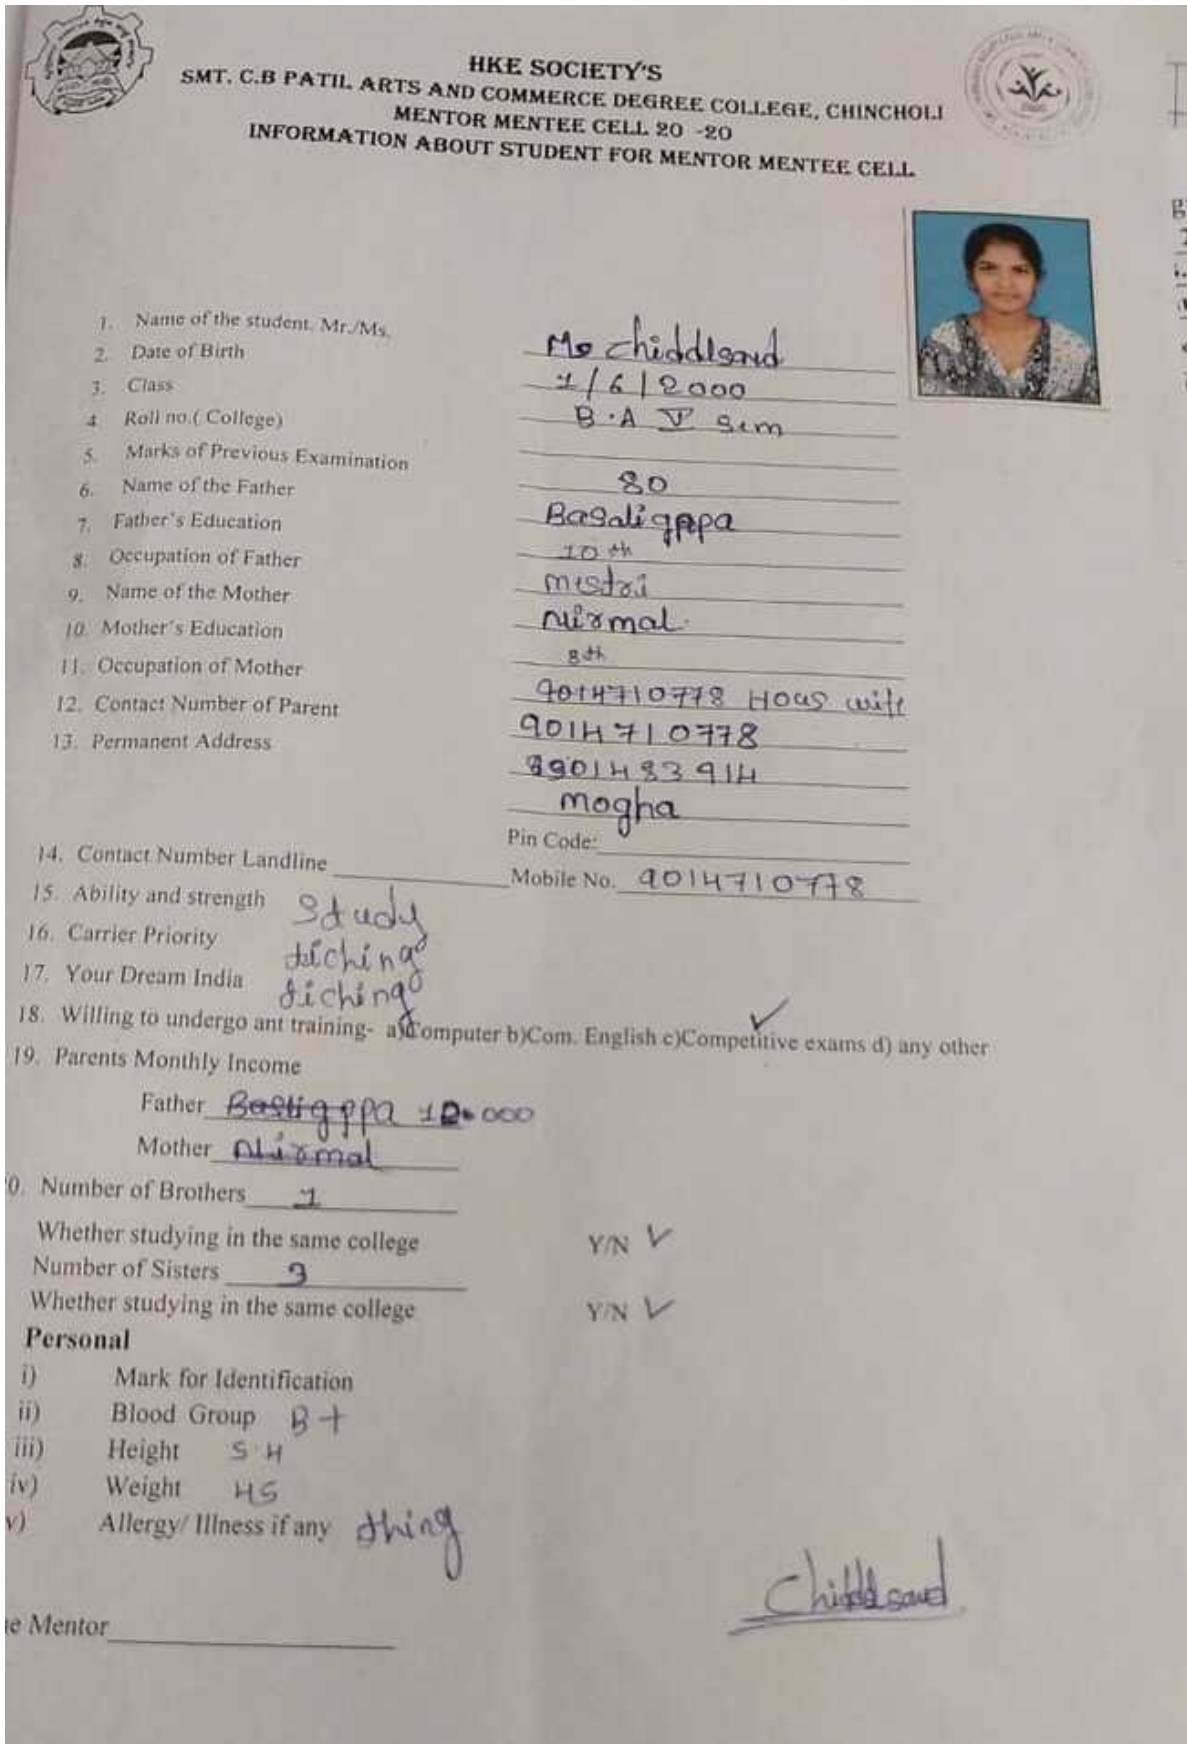 HKE SOCIETY'S
SMT. C.B PATIL ARTS AND COMMERCE DEGREE COLLEGE, CHINCHOLI
MENTOR MENTEE CELL 20 -20
INFORMATION ABOUT STUDENT FOR MENTOR MENTEE CELL
1. Name of the student, Mr./Ms. Ms Chiddlsand
2. Date of Birth 1/6/2000
3. Class B.A V Sem
4. Roll no.( College)
5. Marks of Previous Examination 80
6. Name of the Father Basaligppa
7. Father's Education 10 th
8. Occupation of Father mestri
9. Name of the Mother Nirmal
10. Mother's Education 8th
11. Occupation of Mother 9014710778 Hous wife
12. Contact Number of Parent 9014710778
8901483914
13. Permanent Address mogha
Pin Code:
14. Contact Number Landline Mobile No. 9014710778
15. Ability and strength Study
16. Carrier Priority teiching
17. Your Dream India tiching
18. Willing to undergo ant training- a)Computer b)Com. English c)Competitive exams d) any other
19. Parents Monthly Income
Father Bastigppa 10.000
Mother Nirmal
0. Number of Brothers 1
Whether studying in the same college Y/N ✓
Number of Sisters 3
Whether studying in the same college Y/N ✓
Personal
i) Mark for Identification
ii) Blood Group B+
iii) Height 5.4
iv) Weight 45
v) Allergy/ Illness if any thing
Chiddlsand
e Mentor